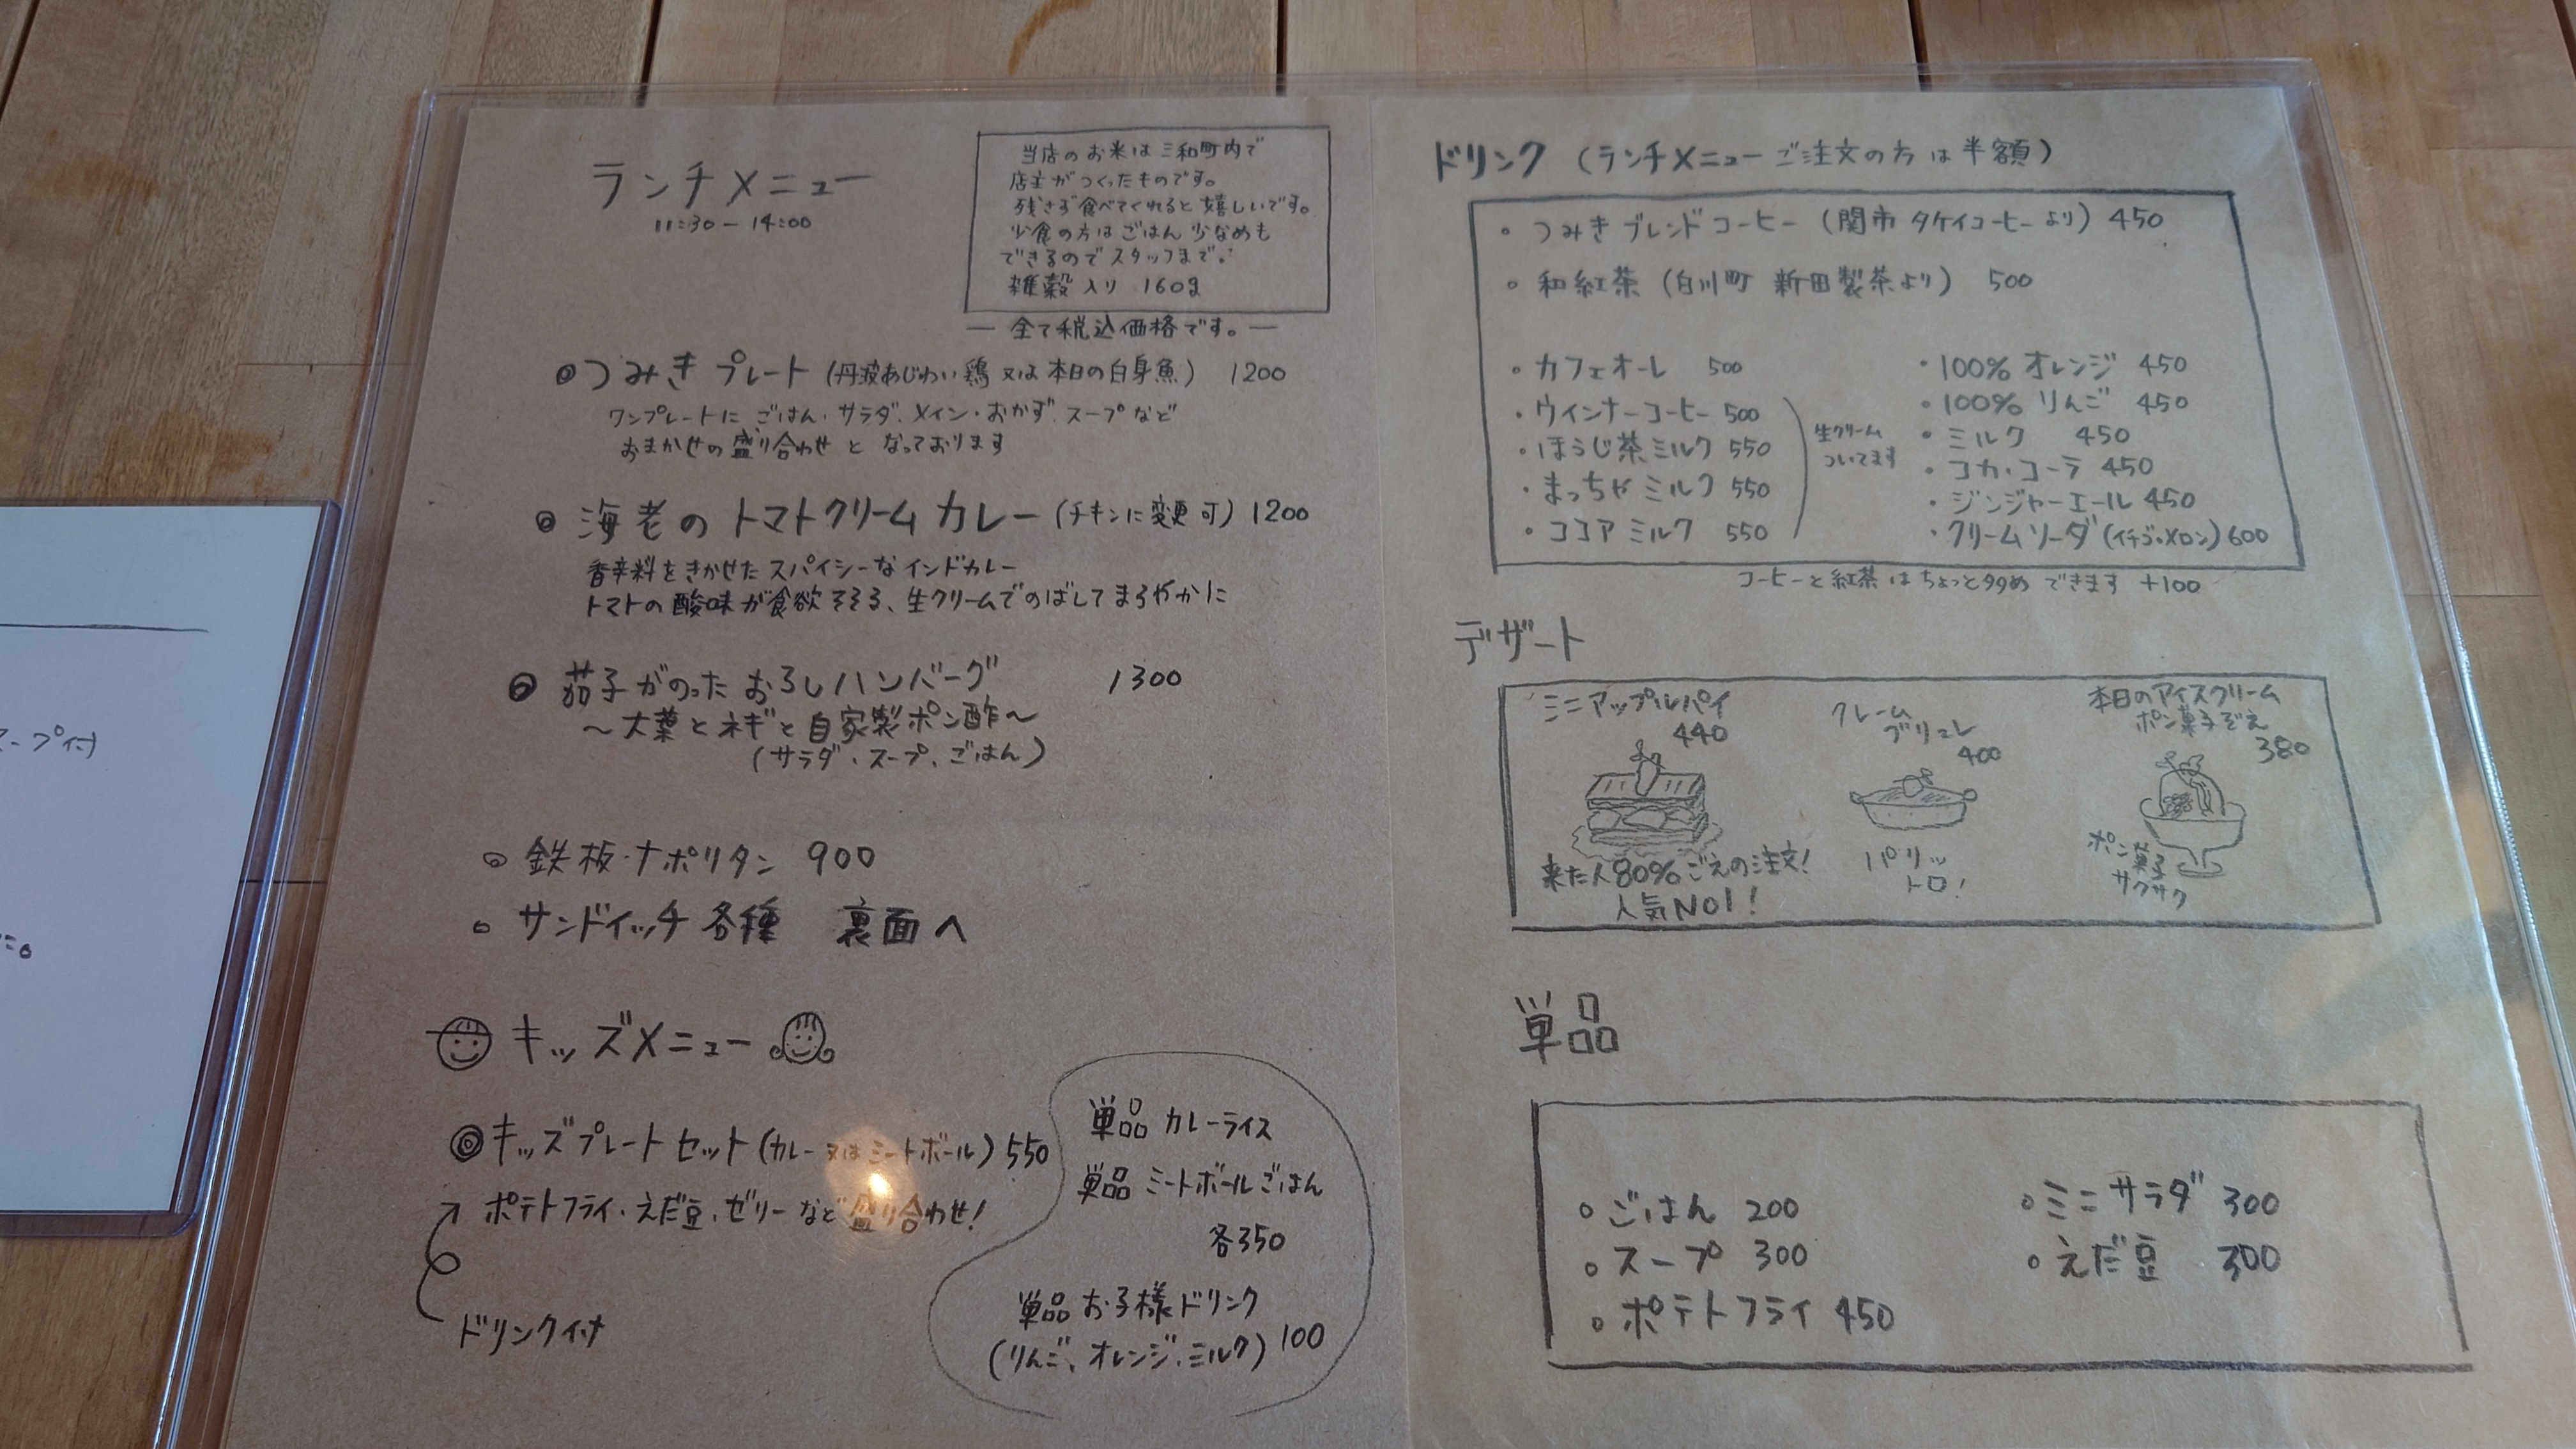 ランチメニュー
11:30 - 14:00
当店のお米は三和町内で
店主がつくったものです。
残さず食べてくれると嬉しいです。
少食の方はごはん少なめも
できるのでスタッフまで。
雑穀入り 160g
— 全て税込価格です。—
◎つみきプレート (丹波あじわい鶏 又は 本日の白身魚) 1200
ワンプレートに ごはん・サラダ、メイン・おかず、スープなど
おまかせの盛り合わせ と なっております
◎ 海老の トマトクリーム カレー (チキンに変更可) 1200
香辛料をきかせた スパイシーな インドカレー
トマトの酸味が食欲そそる、生クリームでのばしてまろやかに
◎ 茄子がのった おろしハンバーグ 1300
〜大葉とネギと自家製ポン酢〜
(サラダ、スープ、ごはん)
◎ 鉄板・ナポリタン 900
○ サンドイッチ 各種 裏面へ
キッズメニュー
◎キッズプレート セット (カレー 又は ミートボール) 550
ポテトフライ・えだ豆・ゼリー など 盛り合わせ!
ドリンク付
単品 カレーライス
単品 ミートボールごはん
各350
単品 お子様ドリンク
(りんご、オレンジ、ミルク) 100
ドリンク (ランチメニュー ご注文の方は半額)
・つみき ブレンド コーヒー (関市 タケイコーヒー より) 450
・和紅茶 (白川町 新田製茶より) 500
・カフェオーレ 500
・ウインナーコーヒー 500
・ほうじ茶ミルク 550
・まっちゃ ミルク 550
・ココア ミルク 550
生クリーム
ついてます
・100% オレンジ 450
・100% りんご 450
・ミルク 450
・コカ・コーラ 450
・ジンジャーエール 450
・クリームソーダ (イチゴ・メロン) 600
コーヒーと紅茶 は ちょっと多め できます +100
デザート
ミニアップルパイ
440
来た人80%ごえの注文!
人気NO1!
クレーム
ブリュレ
400
パリッ
トロ!
本日のアイスクリーム
ポン菓子ぞえ
380
ポン菓子
サクサク
単品
○ ごはん 200
○ スープ 300
○ ポテトフライ 450
○ミニサラダ 300
○えだ豆 300